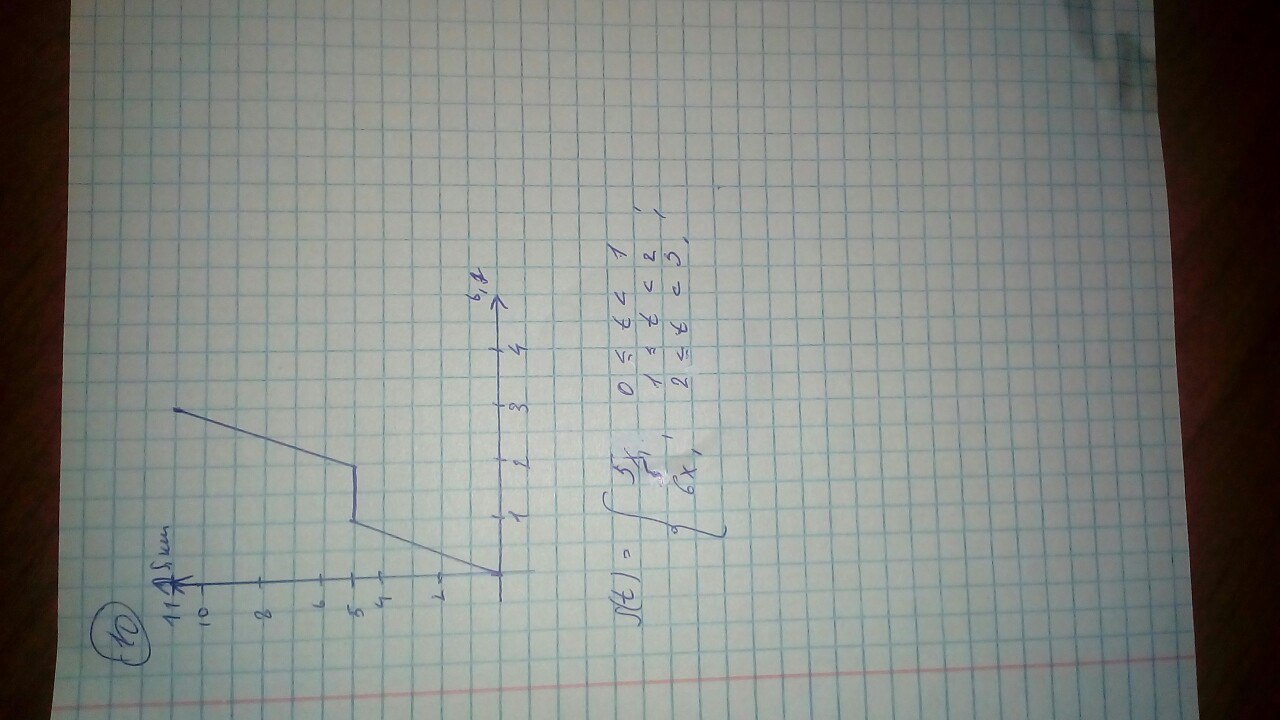 10
S km
11
10
8
6
5
4
2
1 2 3 4
t, ч
S(t) = { 5x, 0 ≤ t < 1
5, 1 ≤ t < 2,
6x, 2 ≤ t < 3,